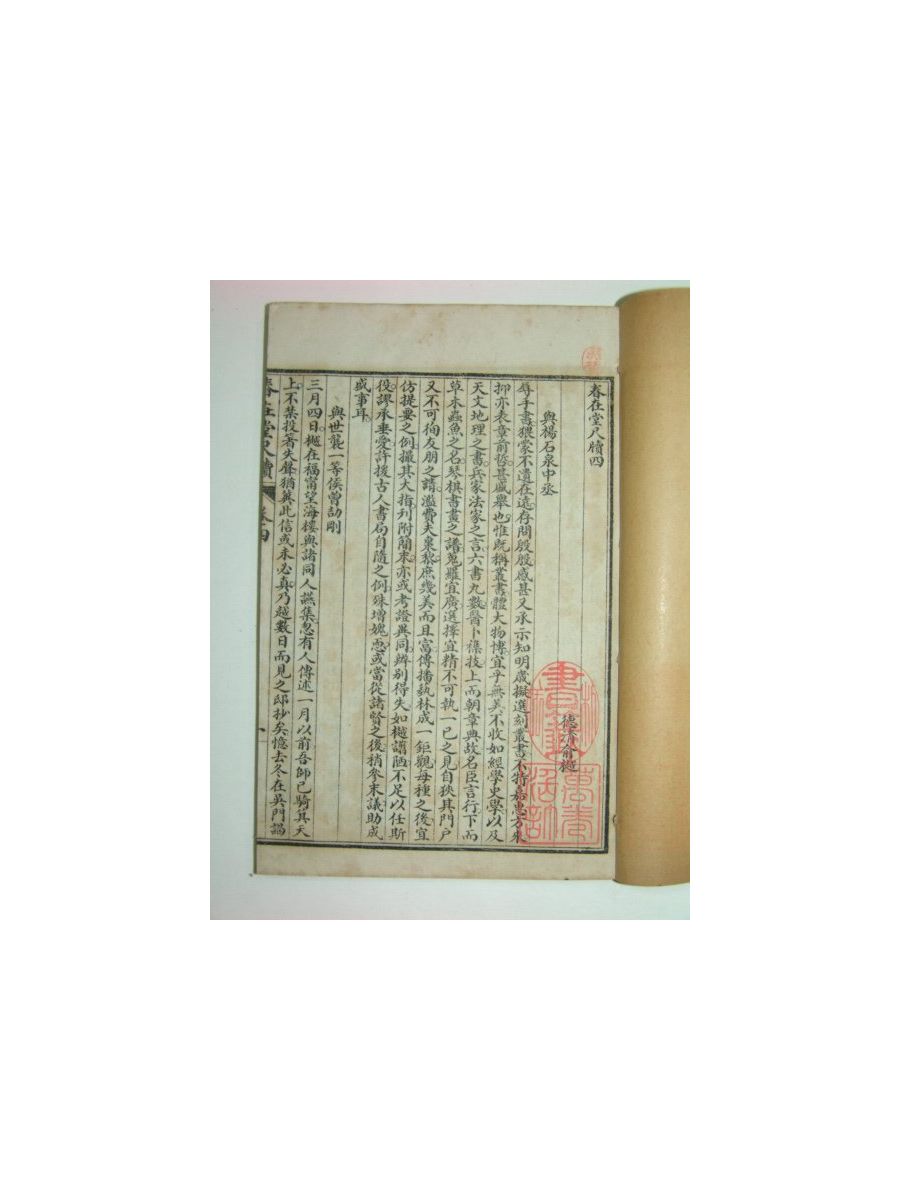 春在堂尺牘四
德清俞樾
與楊石泉中丞
辱手書猥蒙不遺在遠存問殷殷感甚又承示知明歲擬選刻叢書不特嘉惠方來
抑亦表章前哲甚盛舉也惟既稱叢書體大物博宜乎無美不收如經學史學以及
天文地理之書兵家法家之言六書九數醫卜雜技上而朝章典故名臣言行下而
草木蟲魚之名琴棋書畫之譜蒐羅宜廣選擇宜精不可執一己之見自狹其門戶
又不可徇友朋之請濫費夫棗棃庶幾美而且富傳播埶林成一鉅觀每種之後宜
仿提要之例撮其大指刊附簡末亦或考證異同辨別得失如樾譾陋不足以任斯
役謬承垂愛許援古人書局自隨之例殊增媿恧或當從諸賢之後稍參末議助成
盛事耳
與世襲一等侯曾劼剛
三月四日樾在福甯望海樓與諸同人讌集忽有人傳述一月以前吾師已騎箕天
上不禁投箸失聲猶冀此信或未必真乃越數日而見之邸抄矣憶去冬在吳門謁
春在堂尺牘 卷四 一